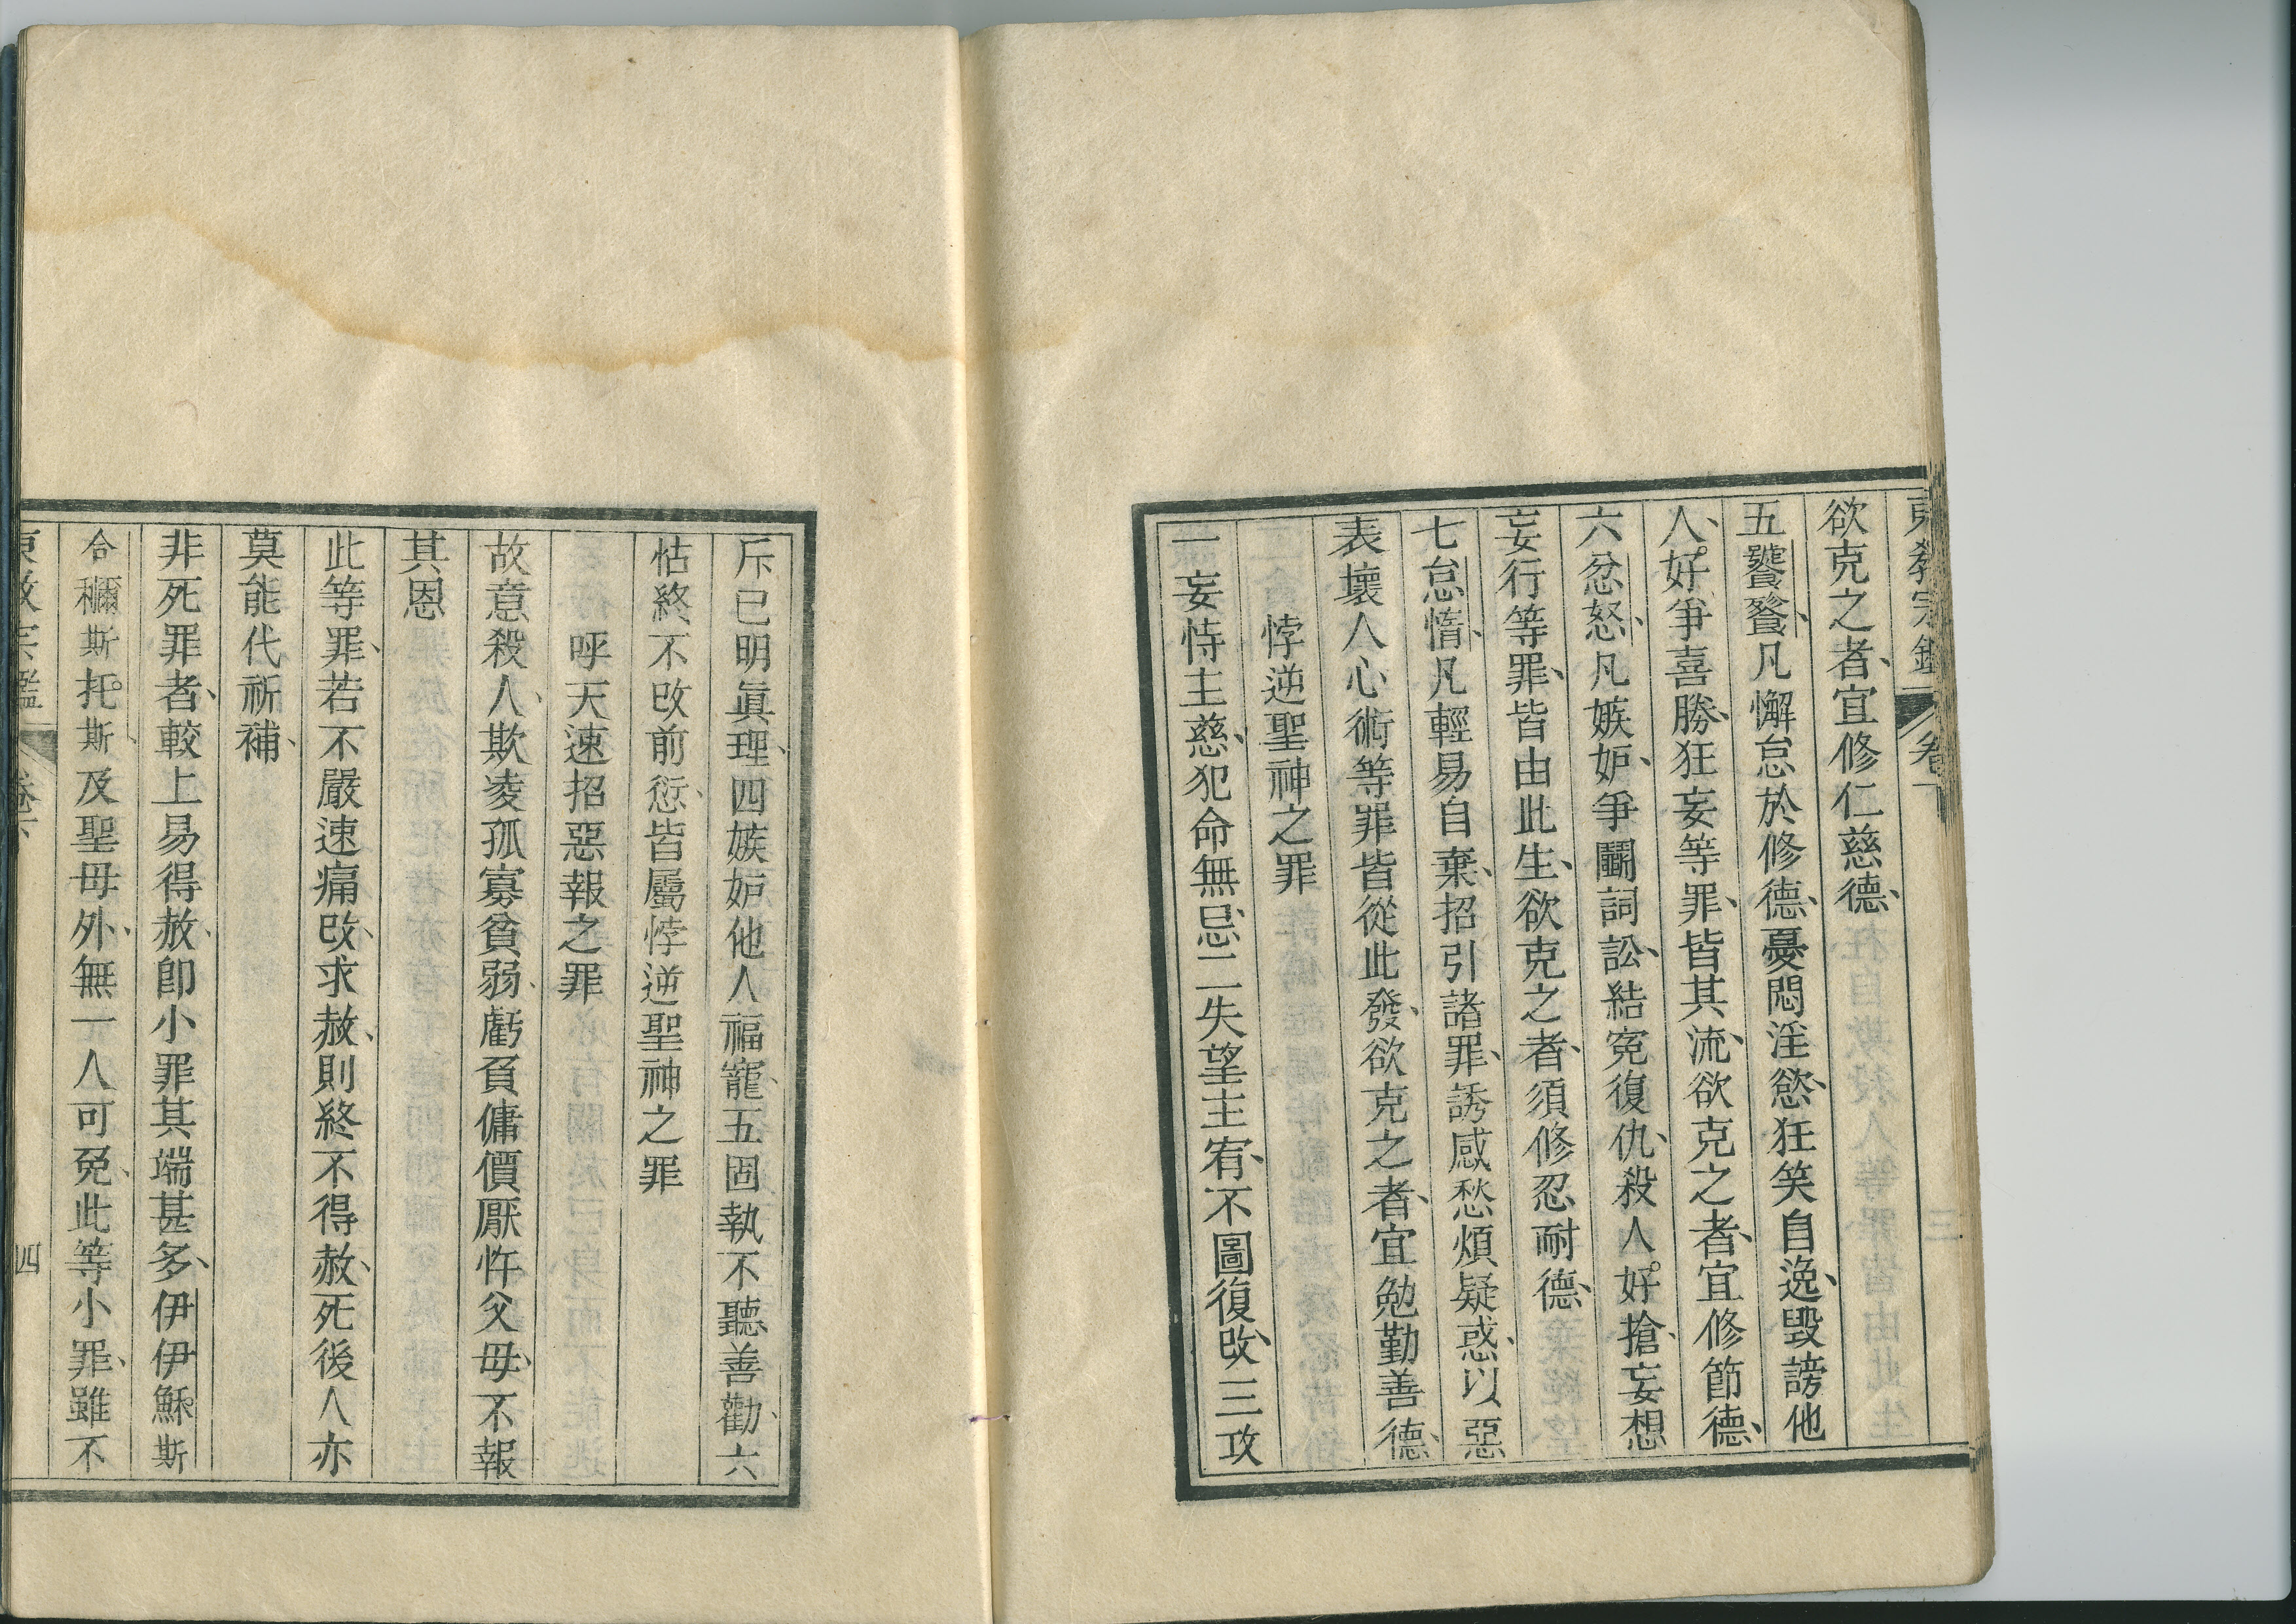 東教宗鑑 卷下
欲克之者、宜修仁慈德、
五饕餮、凡懈怠於修德、憂悶淫慾、狂笑自逸、毀謗他
人、好爭喜勝、狂妄等罪、皆其流、欲克之者、宜修節德、
六忿怒、凡嫉妒、爭鬬詞訟、結寃復仇、殺人。好搶、妄想
妄行等罪、皆由此生、欲克之者、須修忍耐德、
七怠惰、凡輕易自棄、招引諸罪、誘感愁煩疑惑、以惡
表壞人心術等罪皆從此發、欲克之者、宜勉勤善德、
悖逆聖神之罪
一妄恃主慈、犯命無忌、二失望主宥、不圖復改、三攻
斥已明眞理、四嫉妒他人福寵、五固執不聽善勸、六
怙終不改前愆、皆屬悖逆聖神之罪
呼天速招惡報之罪
故意殺人、欺凌孤寡貧弱、虧負傭價厭忤父母、不報
其恩
此等罪、若不嚴速痛改、求赦、則終不得赦、死後人亦
莫能代祈補、
非死罪者、較上易得赦、卽小罪其端甚多、伊伊穌。斯
合穪斯托。斯、及聖母外、無一人可免、此等小罪、雖不
東教宗鑑 卷下 四